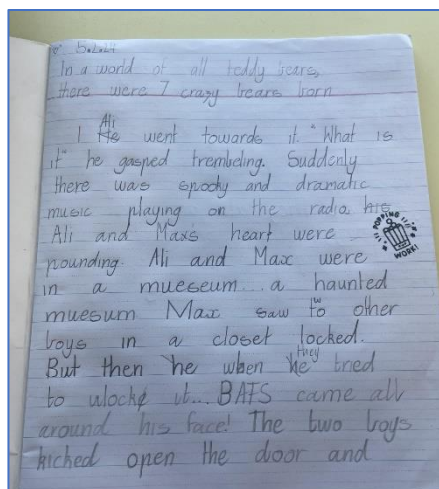 5.2.24
In a world of all teddy bears,
there were 7 crazy bears born
Ali
I He went towards it. "What is
it" he gasped trembeling. Suddenly
there was spooky and dramatic
music playing on the radio his
Ali and Max's heart were
pounding. Ali and Max were
in a mueseum... a haunted
muesum Max saw to other
w
boys in a closet locked.
they
But then he when he tried
to ulock it... BATS came all
around his face! The two boys
kicked open the door and
POPPING
WORK!